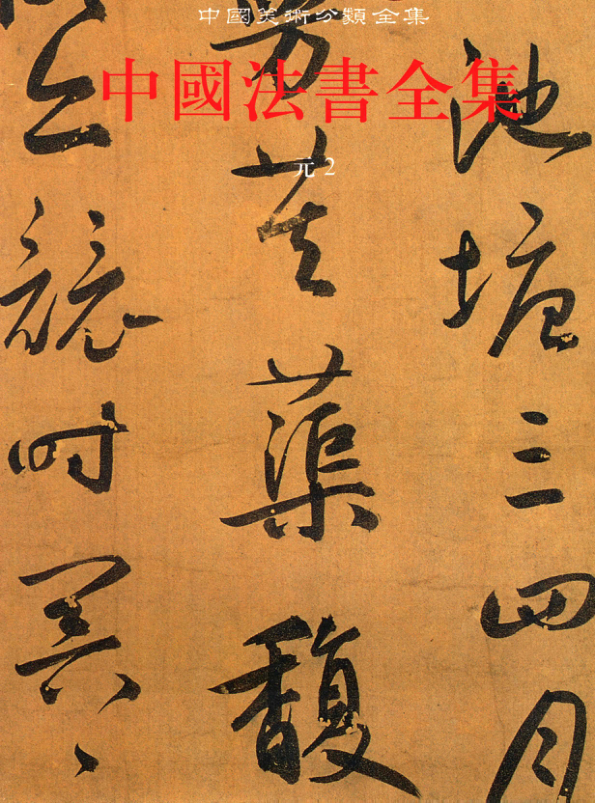 中國美術分類全集
中國法書全集
元 2
池塘三四月
芙蕖馥
競時